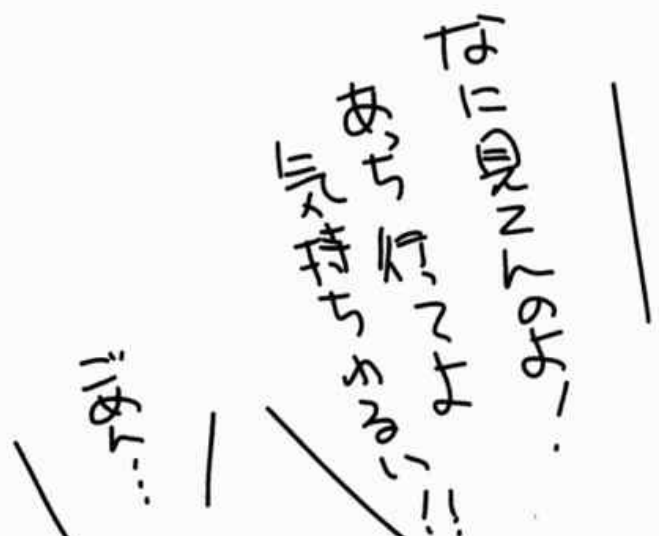 なに見てんのよ!
あっち行ってよ
気持ちわるい!!
ごめん…